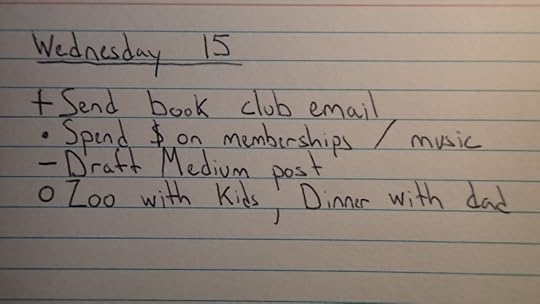 Wednesday 15
+ Send book club email
• Spend $ on memberships / music
– Draft Medium post
O Zoo with Kids, Dinner with dad